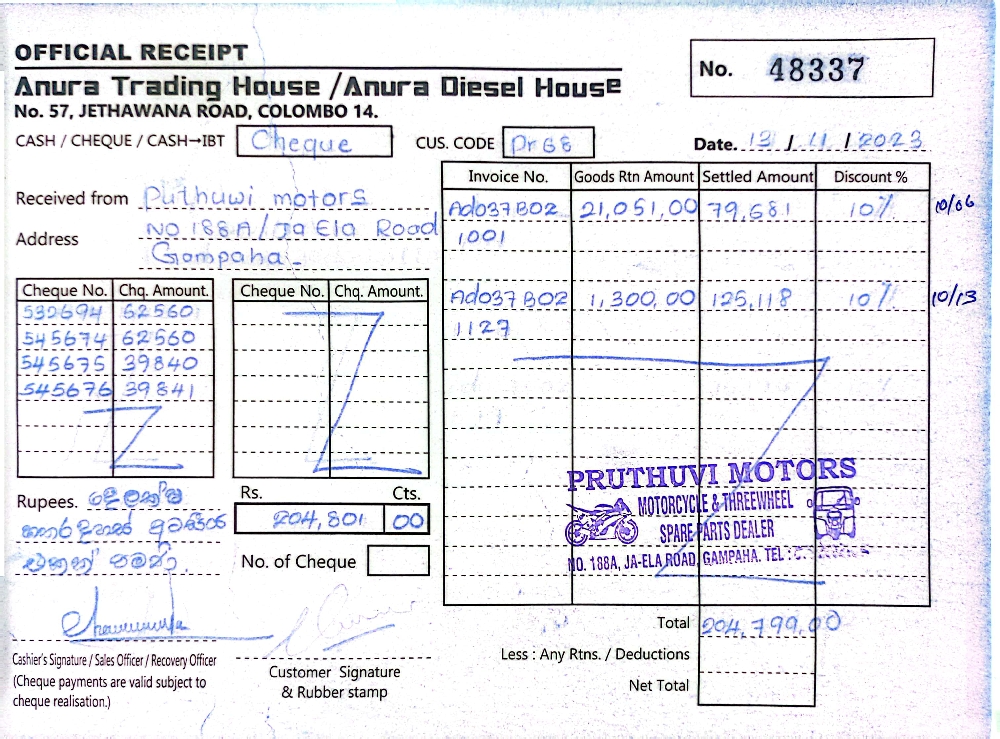 OFFICIAL RECEIPT
Anura Trading House / Anura Diesel House
No. 57, JETHAWANA ROAD, COLOMBO 14.
No. 48337
CASH / CHEQUE / CASH→IBT Cheque
CUS. CODE Pr68
Date. 13 / 11 / 2023
Received from Puthuwi motors
Address NO 188A/Ja Ela Road
Gampaha
Invoice No. Goods Rtn Amount Settled Amount Discount %
Ad037B02 21,051,00 79,681 10% 10/06
1001
Ad037B02 11,300,00 125,118 10% 10/13
1127
Cheque No. Chq. Amount. Cheque No. Chq. Amount.
532694 62560
545674 62560
545675 39840
545676 39841
Rupees. දෙලක්ෂ
හාරදහස් අටසිය
එකක් පමණි.
Rs. Cts.
204,801 00
No. of Cheque
PRUTHUVI MOTORS
MOTORCYCLE & THREEWHEEL
SPARE PARTS DEALER
NO. 188A, JA-ELA ROAD, GAMPAHA. TEL :
Total 204,799,00
Less : Any Rtns. / Deductions
Net Total
Cashier's Signature / Sales Officer / Recovery Officer
(Cheque payments are valid subject to
cheque realisation.)
Customer Signature
& Rubber stamp